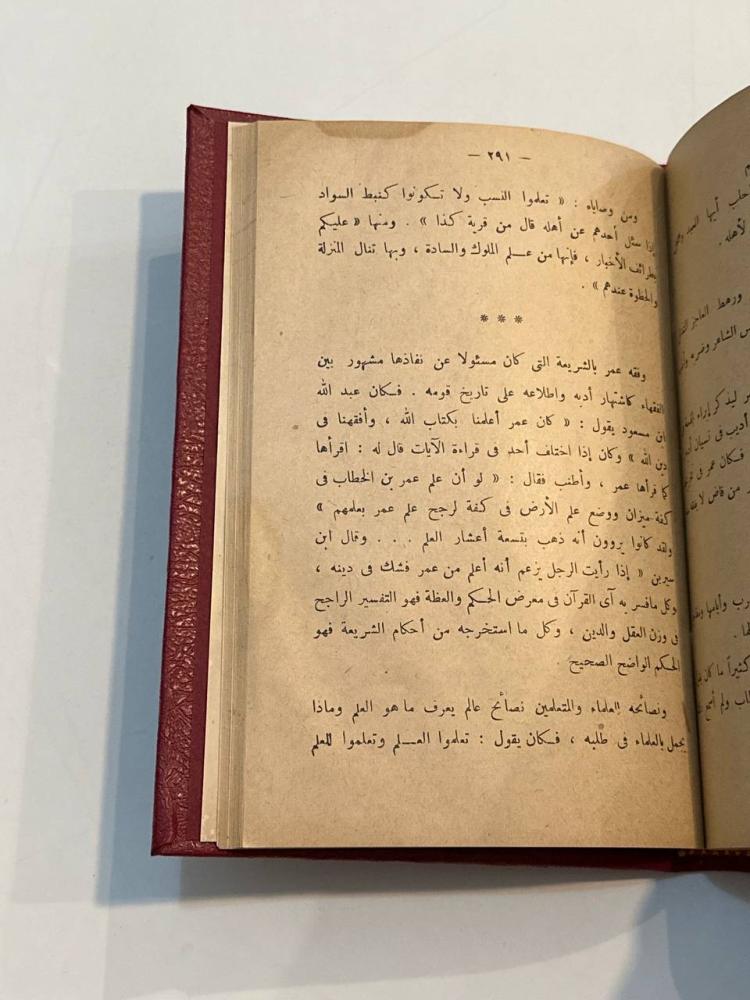 — ٢٩١ —
ومن وصاياه : « تعلموا النسب ولا تكونوا كنبط السواد
إذا سئل أحدهم عن أهله قال من قرية كذا » . ومنها « عليكم
بطرائف الأخبار ، فإنها من علم الملوك والسادة ، وبها تنال المنزلة
والحظوة عندهم » .
* * *
وفقه عمر بالشريعة التى كان مسئولا عن نفاذها مشهور بين
الفقهاء كاشتهار أدبه واطلاعه على تاريخ قومه . فكان عبد الله
ابن مسعود يقول : « كان عمر أعلمنا بكتاب الله ، وأفقهنا فى
دين الله » وكان إذا اختلف أحد فى قراءة الآيات قال له : اقرأها
كما قرأها عمر ، وأطنب فقال : « لو أن علم عمر بن الخطاب فى
كفة ميزان ووضع علم الأرض فى كفة لرجح علم عمر بعلمهم »
ولقد كانوا يروون أنه ذهب بتسعة أعشار العلم . . . وقال ابن
سيرين « إذا رأيت الرجل يزعم أنه أعلم من عمر فشك فى دينه ،
وكل مافسر به آى القرآن فى معرض الحكم والعظة فهو التفسير الراجح
فى وزن العقل والدين ، وكل ما استخرجه من أحكام الشريعة فهو
الحكم الواضح الصحيح .
ونصائحه للعلماء والمتعلمين نصائح عالم يعرف ما هو العلم وماذا
يجمل بالعلماء فى طلبه ، فكان يقول : تعلموا العلم وتعلموا للعلم